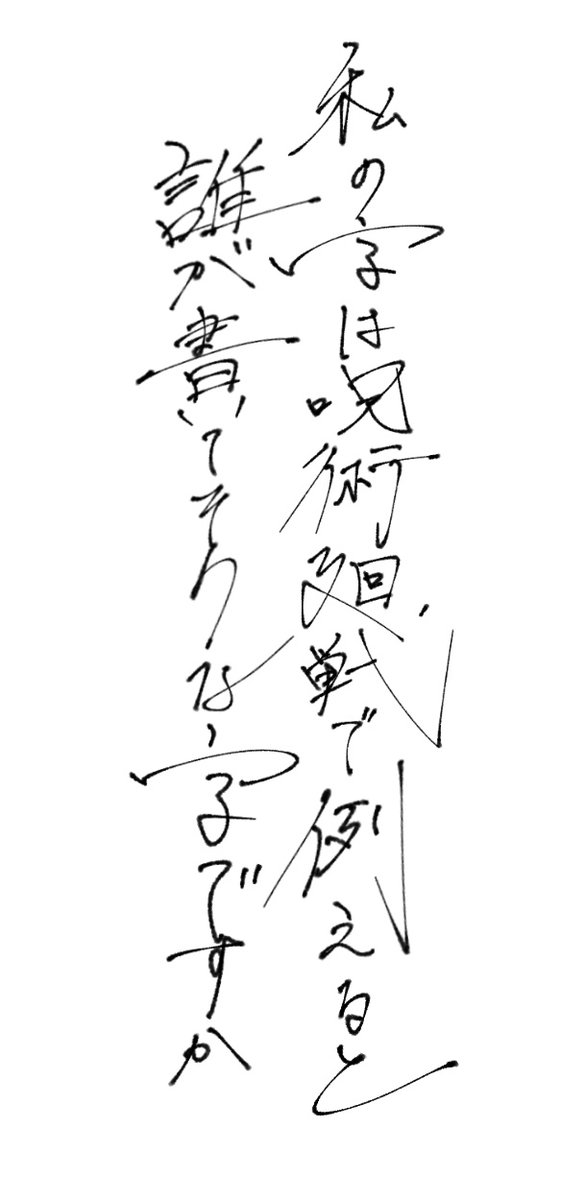 私の字は呪術廻戦で例えると
誰が書いてそうな字ですか